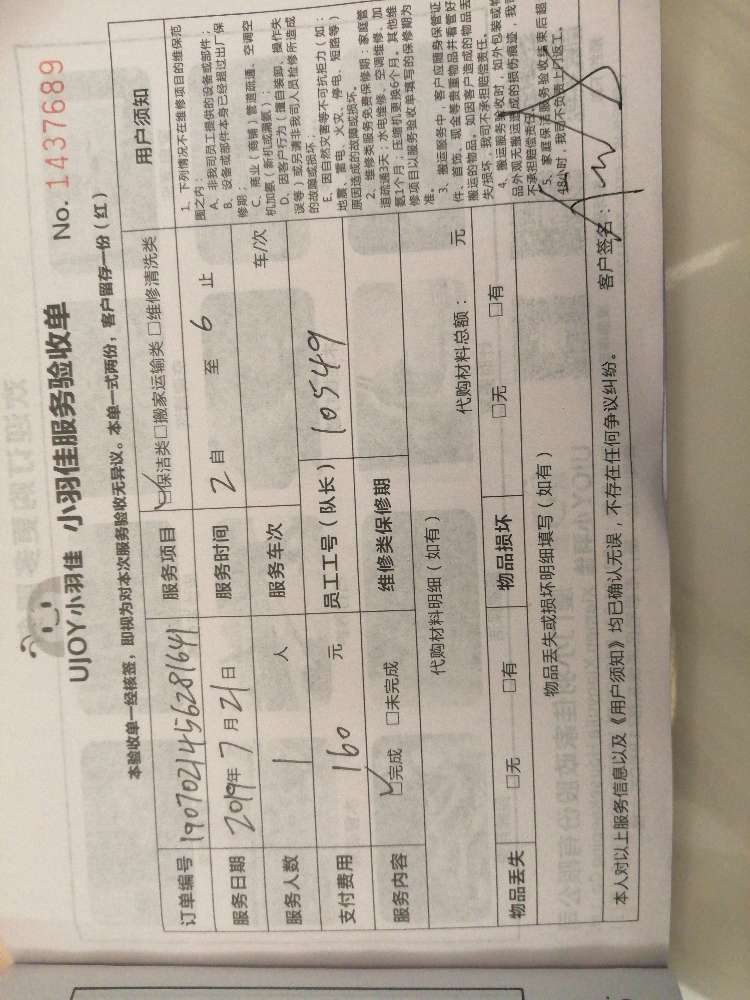 UJOY小羽佳 小羽佳服务验收单 No. 1437689
本验收单一经核签，即视为对本次服务验收无异议。本单一式两份，客户留存一份（红）
订单编号 1907021456281641 服务项目 ☑保洁类□搬家运输类 □维修清洗类
服务日期 2019年 7 月 21 日 服务时间 2 自 至 6 止
服务人数 1 人 服务车次 车/次
支付费用 160 元 员工工号（队长） 10549
服务内容 ☑完成 □未完成 维修类保修期
代购材料明细（如有） 代购材料总额： 元
物品丢失 □无 □有 物品损坏 □无 □有
物品丢失或损坏明细填写（如有）
用户须知
1、下列情况不在维修项目的维保范
围之内：
A、非我司员工提供的设备或部件；
B、设备或部件本身已经超过出厂保
修期；
C、商业（商铺）管道疏通、空调空
机加氨（新机或漏氨）；
D、因客户行为（擅自装卸、操作失
误等）或另请非我司人员检修所造成
的故障或损坏；
E、因自然灾害等不可抗拒力（如：
地震、雷电、火灾、停电、短路等）
原因造成的故障或损坏。
2、维修类服务免费保修期：家庭管
道疏通3天；水电维修、空调维修、加
氨1个月；压缩机更换6个月。其他维
修项目以服务验收单填写的保修期为
准。
3、搬运服务中，客户应随身保管证
件、首饰、现金等贵重物品并看管好
搬运的物品。如因客户造成的物品丢
失/损坏，我司不承担赔偿责任。
4、搬运服务验收时，如外包装或物
品外观无搬运造成的损伤痕迹，我司
不承担赔偿责任
5、家庭保洁服务验收结束后超
48小时，我司不负责上门返工。
本人对以上服务信息以及《用户须知》均已确认无误，不存在任何争议纠纷。 客户签名：